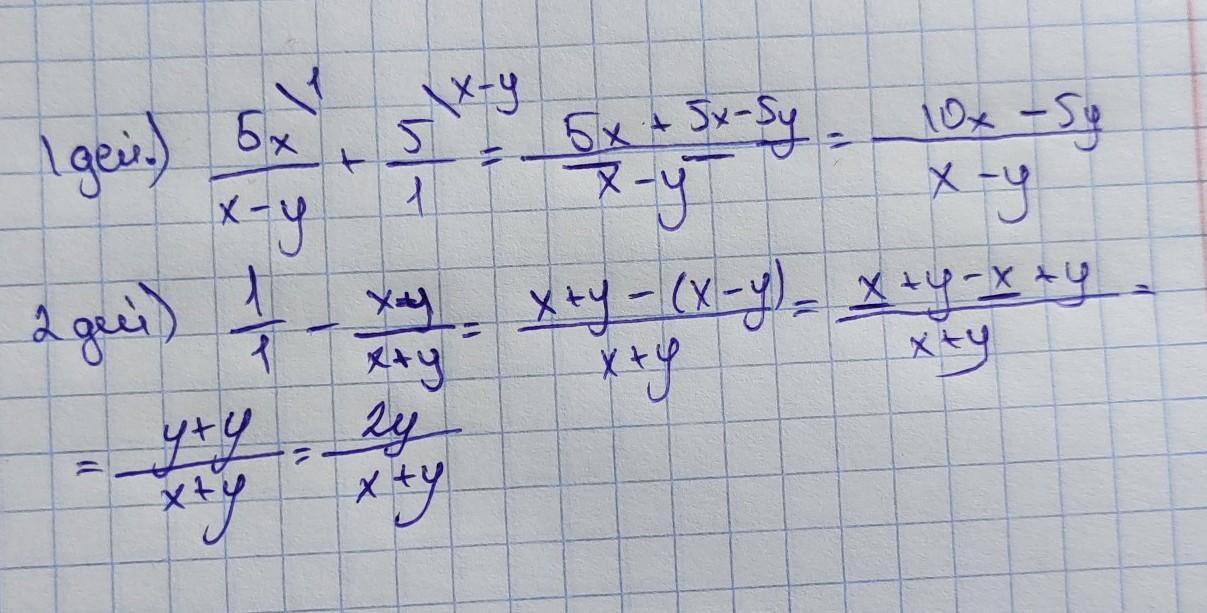 1 дей.) 5x\1/(x-y) + 5\x-y/1 = (5x + 5x-5y)/(x-y) = (10x - 5y)/(x-y)
2 дей) 1/1 - (x-y)/(x+y) = (x+y - (x-y))/(x+y) = (x+y-x+y)/(x+y) =
= (y+y)/(x+y) = 2y/(x+y)